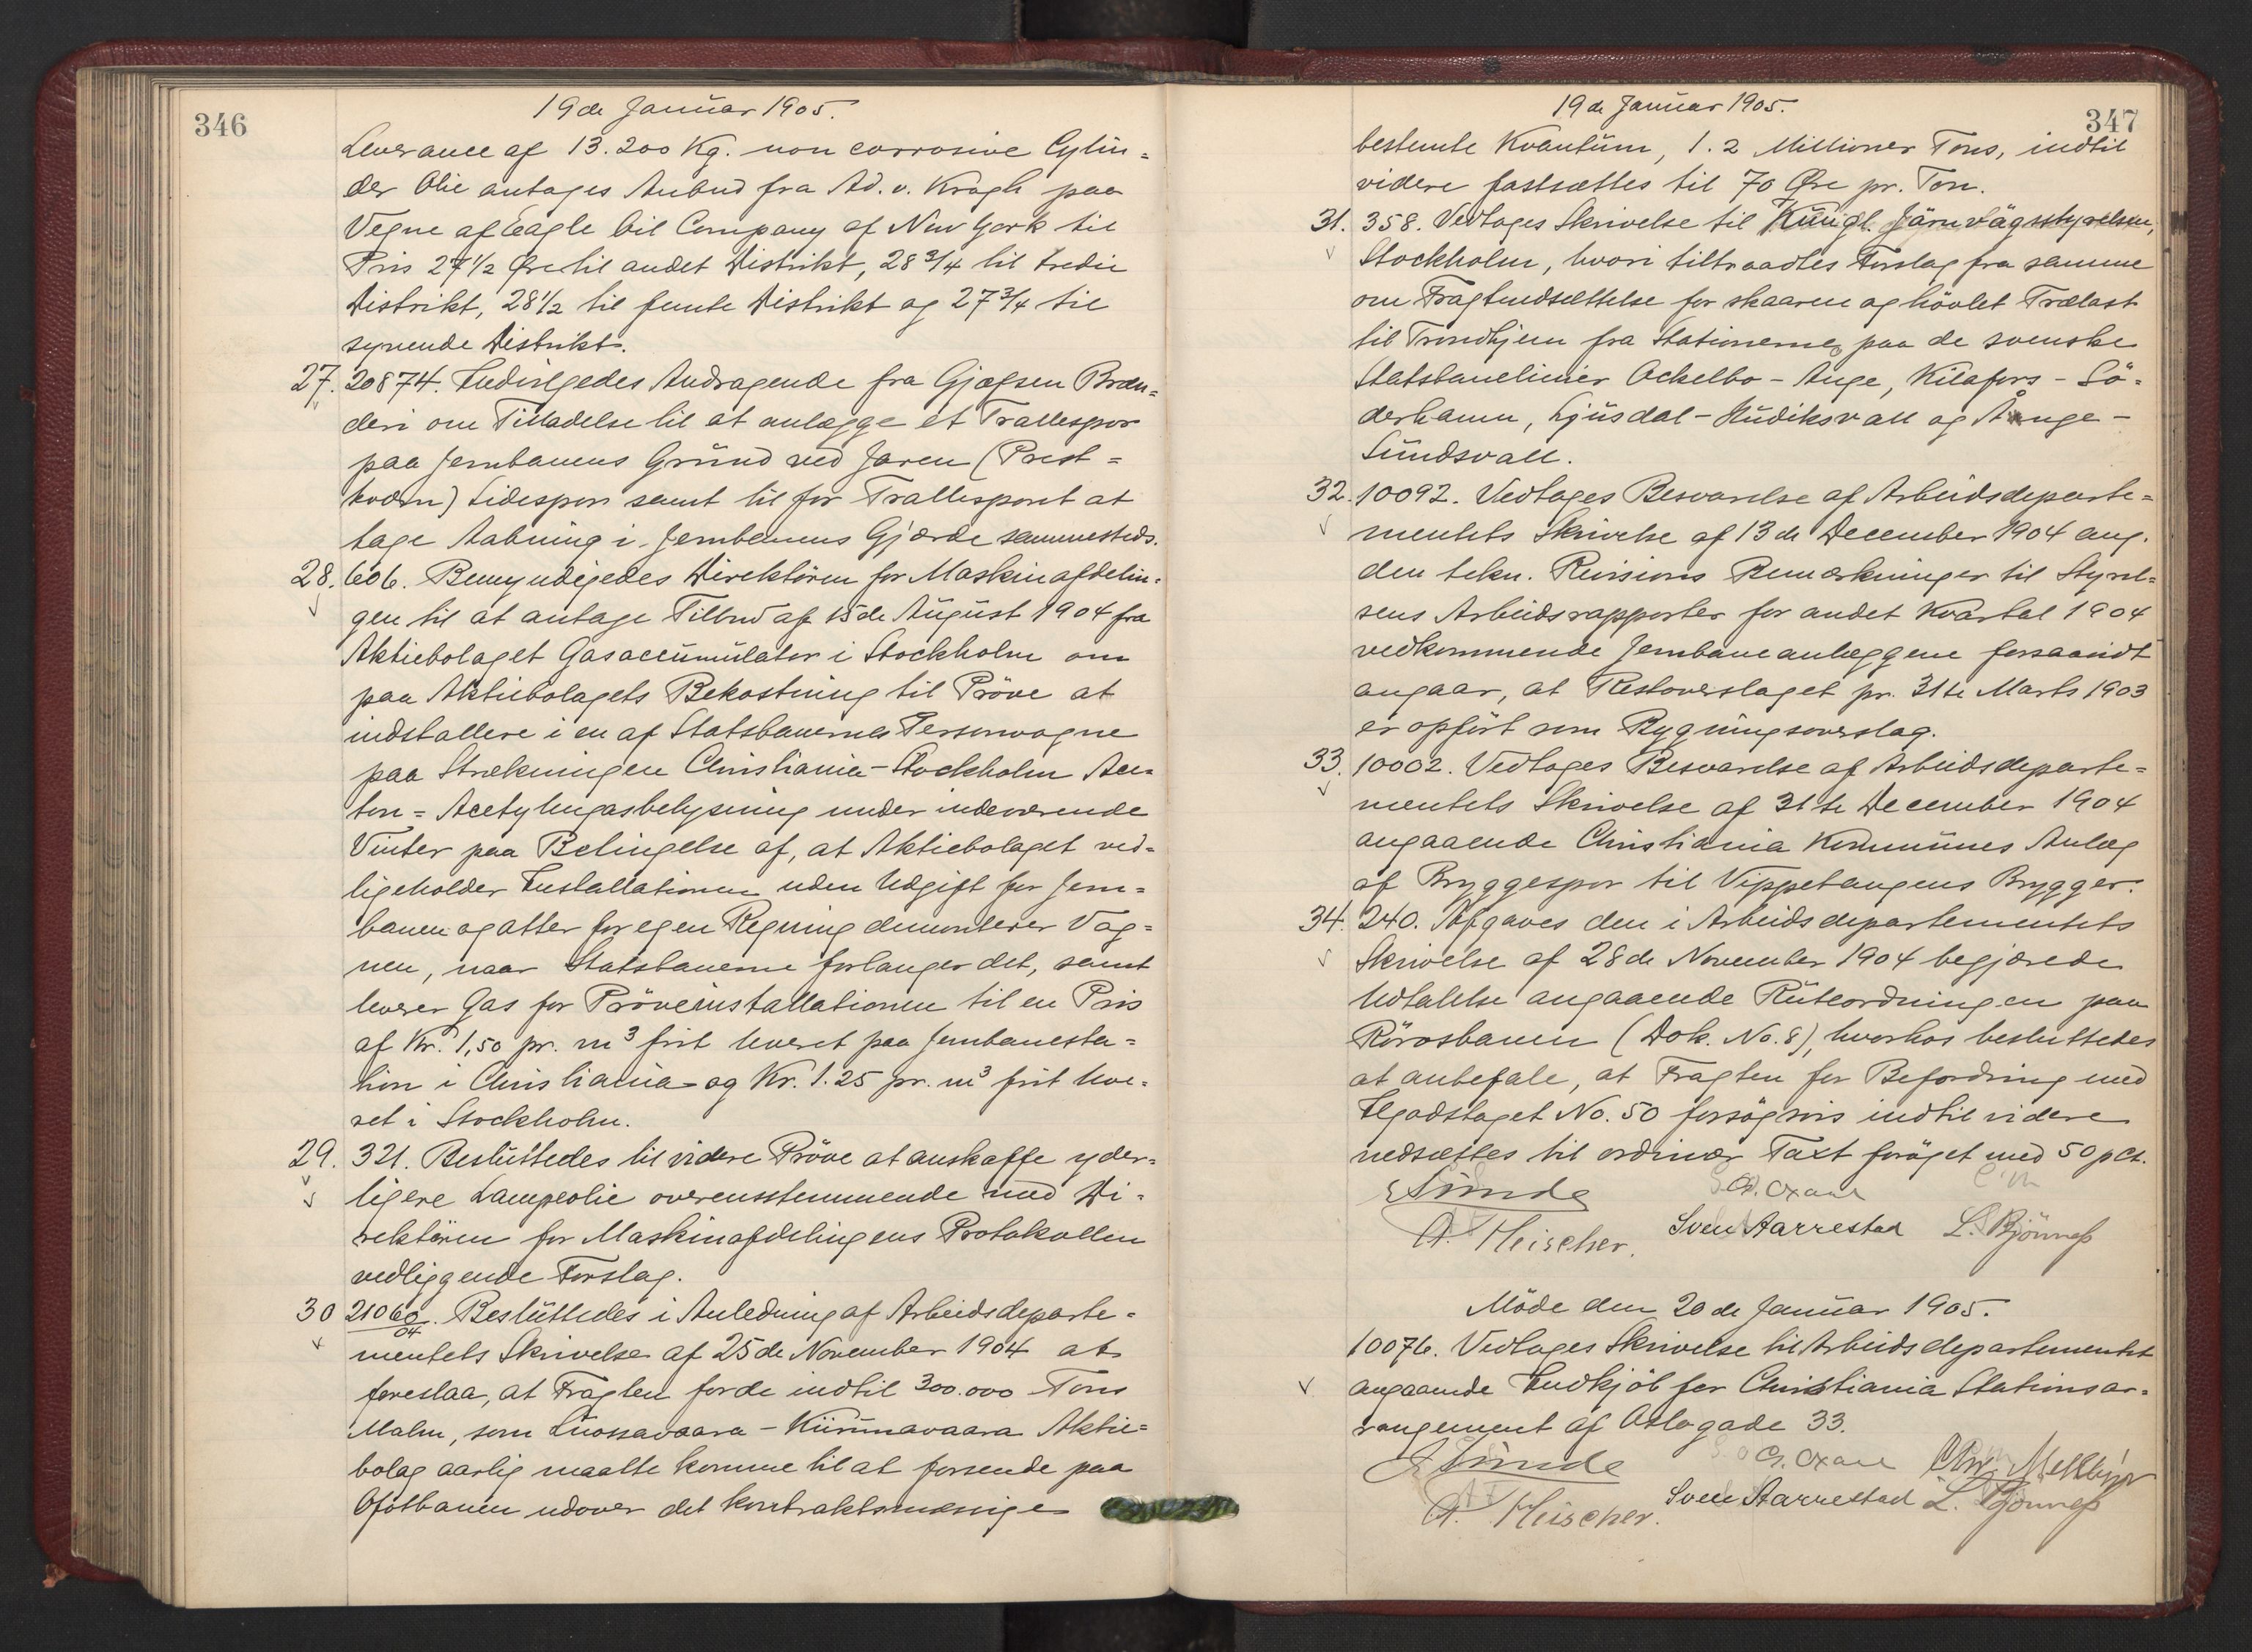 346
19de Januar 1905.
Leverance af 13.200 Kg. non corrosive Cylin=
der Olie antages Anbud fra Ad. v. Krogh paa
Vegne af Eagle Oil Company of New York til
Pris 27 1/2 Øre til andet Distrikt, 28 3/4 til tredie
Distrikt, 28 1/2 til femte Distrikt og 27 3/4 til
syvende Distrikt.
27. 20874. Indvilgedes Andragende fra Gjøfsen Bræn=
deri om Tilladelse til at anlægge et Trallespor
paa Jernbanens Grund ved Jaren (Prest=
kværn) Sidespor samt til for Trallesporet at
tage Aabning i Jernbanens Gjærde sammesteds.
28. 606. Bemyndigedes Direktören for Maskinafdelin=
gen til at antage Tilbud af 15de August 1904 fra
Aktiebolaget Gasaccumulator i Stockholm om
paa Aktiebolagets Bekostning til Pröve at
indstallere i en af Statsbanernes Personvogne
paa Strækningen Christiania-Stockholm Ace=
ton=Acetylengasbelysning under indeværende
Vinter paa Betingelse af, at Aktiebolaget ved=
ligeholder Installationen uden Udgift for Jern=
banen og atter for egen Regning demonterer Vog=
nen, naar Statsbanerne forlanger det, samt
leverer Gas for Pröveinstallationen til en Pris
af Kr. 1,50 pr. m3 frit leveret paa Jernbanesta=
tion i Christiania og Kr. 1.25 pr. m3 frit leve=
ret i Stockholm.
29. 321. Besluttedes til videre Pröve at anskaffe yder=
ligere Lampeolie overensstemmende med Di=
rektören for Maskinafdelingens Protokollen
vedliggende Forslag.
30 21060/04. Besluttedes i Anledning af Arbeidsdeparte=
mentets Skrivelse af 25de November 1904 at
foreslaa, at Fragten for de indtil 300.000 Tons
Malm, som Luossavaara-Kiirunavaara Aktie=
bolag aarlig maatte komme til at forsende paa
Ofotbanen udover det kontraktsmæssige
347
19de Januar 1905.
bestemte Kvantum, 1.2 Millioner Tons, indtil
videre fastsættes til 70 Øre pr. Ton.
31. 358. Vedtoges Skrivelse til Kungl. Järnvägsstyrelsen,
Stockholm, hvori tiltraadtes Forslag fra samme
om Fragtnedsættelse for skaaren og hövlet Trælast
til Trondhjem fra Stationerne paa de svenske
Statsbanelinier Ockelbo-Ånge, Kilafors-Sö=
derhamn, Ljusdal-Hudiksvall og Ånge-
Sundsvall.
32. 10092. Vedtoges Besvarelse af Arbeidsdeparte=
mentets Skrivelse af 13de December 1904 ang.
den tekn. Revisions Bemærkninger til Styrel=
sens Arbeidsrapporter for andet Kvartal 1904
vedkommende Jernbaneanlæggene forsaavidt
angaar, at Restoverslaget pr. 31te Marts 1903
er opfört som Bygningsoverslag.
33. 10002. Vedtoges Besvarelse af Arbeidsdeparte=
mentets Skrivelse af 31te December 1904
angaaende Christiania Kommunes Anlæg
af Bryggespor til Vippetangens Brygger.
34. 240. Afgaves den i Arbeidsdepartementets
Skrivelse af 28de November 1904 begjærede
Udtalelse angaaende Ruteordningen paa
Rörosbanen (Dok. No. 8), hvorhos besluttedes
at anbefale, at Fragten for Befordring med
Ilgodstoget No. 50 forsögsvis indtil videre
nedsættes til ordinær Taxt foröget med 50 pCt.
E Sunde
A. Fleischer. Sven Aarrestad L. Bjönnes
Möde den 20de Januar 1905.
10076. Vedtoges Skrivelse til Arbeidsdepartementet
angaaende Indkjöb for Christiania Stationsar=
rangement af Oslogade 33.
E Sunde Chr. Mellbye
A. Fleischer. Sven Aarrestad L. Bjönnes